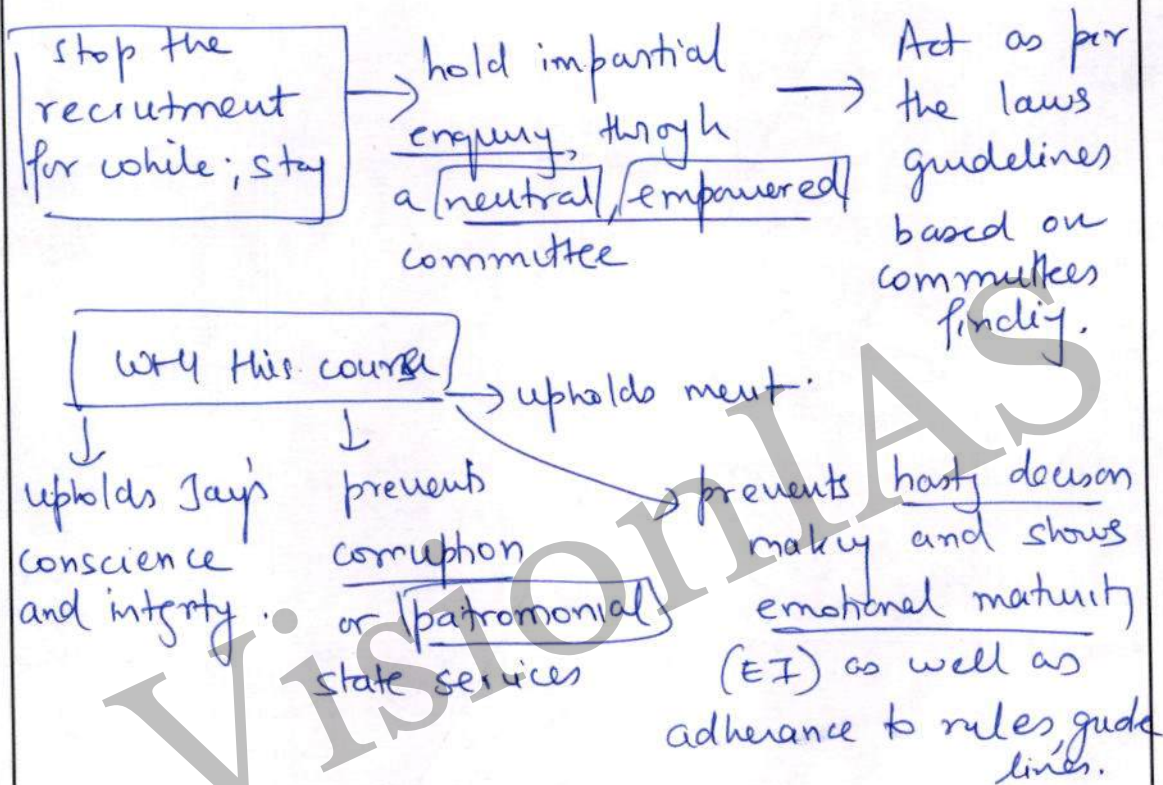 stop the
recrutment
for while; stay
hold impartial
enquiry, throgh
a neutral, empowered
committee
Act as per
the laws
guidelines
based on
commuttees
findig.
WHY this course
upholds merit.
upholds Jay's
conscience
and intgrty.
prevents
corruption
or patromonial
state services
prevents hasty decison
makig and shows
emotional maturity
(EI) as well as
adherance to rules, guide
lines.
VisionIAS